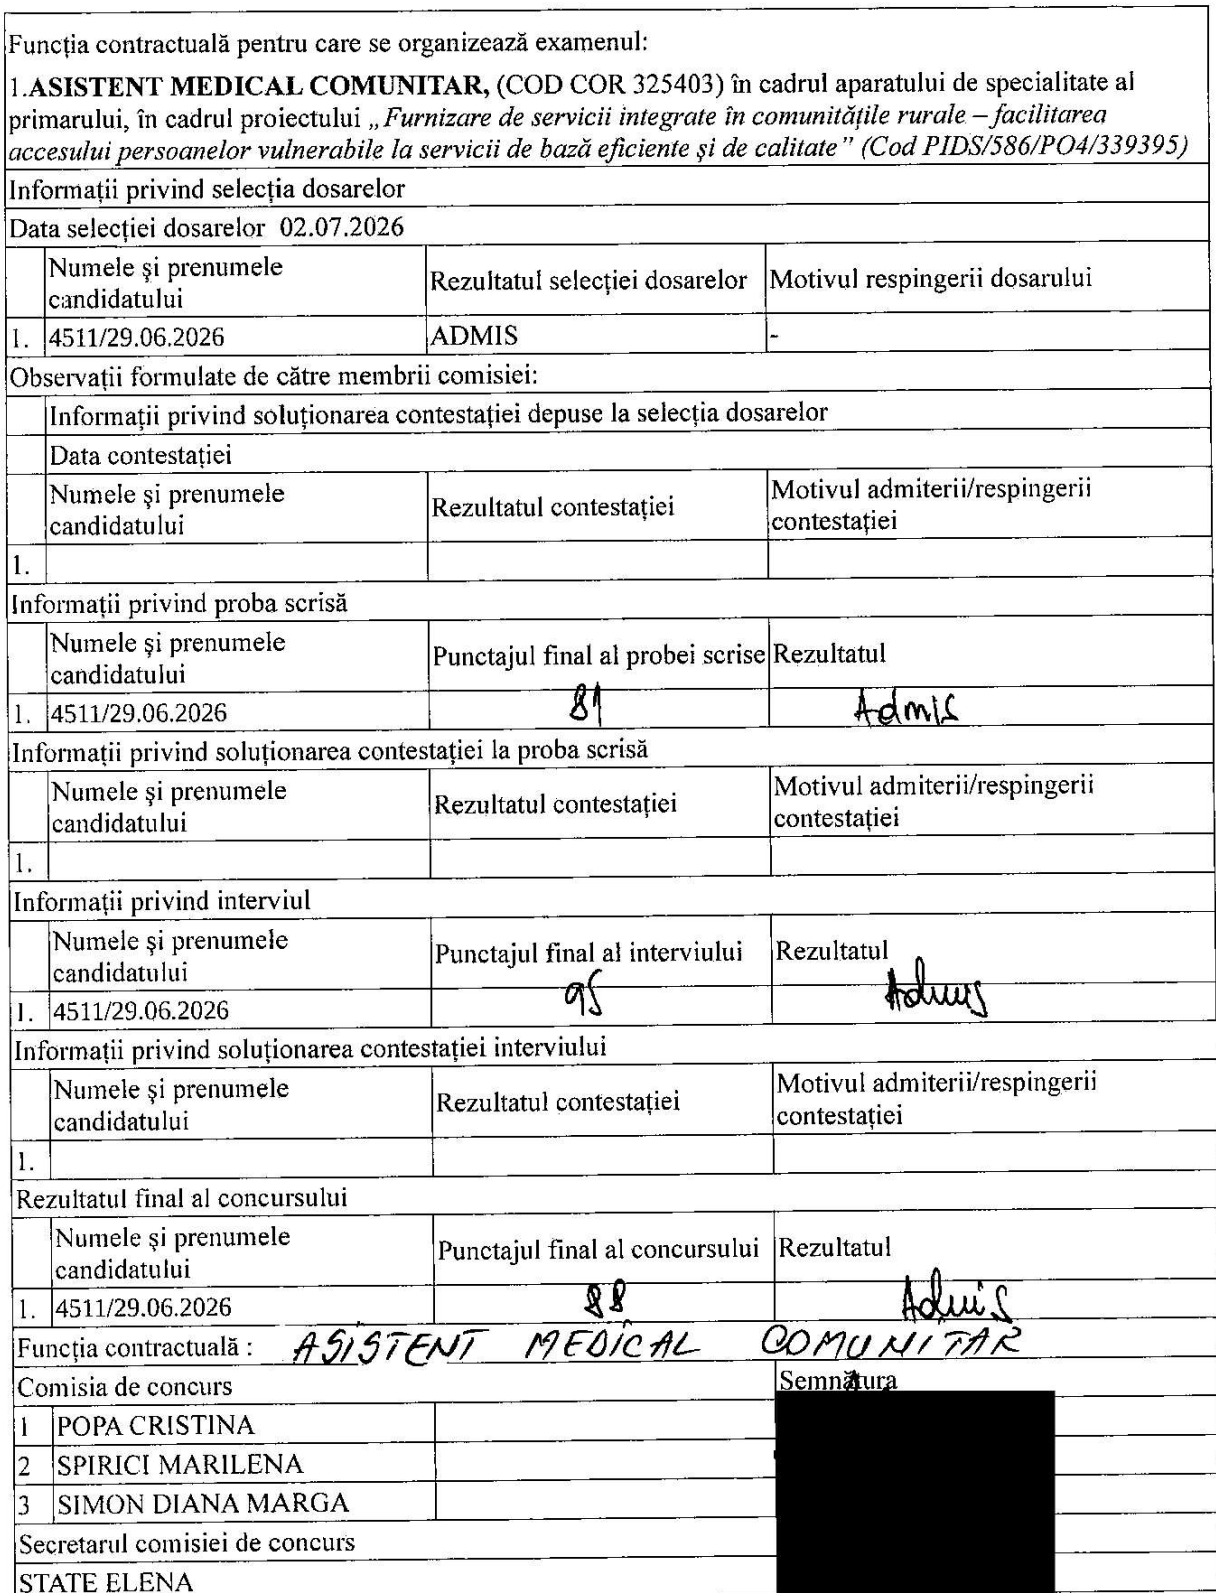 Funcția contractuală pentru care se organizează examenul:
1.ASISTENT MEDICAL COMUNITAR, (COD COR 325403) în cadrul aparatului de specialitate al
primarului, în cadrul proiectului „Furnizare de servicii integrate în comunitățile rurale – facilitarea
accesului persoanelor vulnerabile la servicii de bază eficiente și de calitate" (Cod PIDS/586/PO4/339395)
Informații privind selecția dosarelor
Data selecției dosarelor 02.07.2026
Numele și prenumele
candidatului
Rezultatul selecției dosarelor
Motivul respingerii dosarului
1. 4511/29.06.2026 ADMIS -
Observații formulate de către membrii comisiei:
Informații privind soluționarea contestației depuse la selecția dosarelor
Data contestației
Numele și prenumele
candidatului
Rezultatul contestației
Motivul admiterii/respingerii
contestației
1.
Informații privind proba scrisă
Numele și prenumele
candidatului
Punctajul final al probei scrise
Rezultatul
1. 4511/29.06.2026 81 Admis
Informații privind soluționarea contestației la proba scrisă
Numele și prenumele
candidatului
Rezultatul contestației
Motivul admiterii/respingerii
contestației
1.
Informații privind interviul
Numele și prenumele
candidatului
Punctajul final al interviului
Rezultatul
1. 4511/29.06.2026 95 Admis
Informații privind soluționarea contestației interviului
Numele și prenumele
candidatului
Rezultatul contestației
Motivul admiterii/respingerii
contestației
1.
Rezultatul final al concursului
Numele și prenumele
candidatului
Punctajul final al concursului
Rezultatul
1. 4511/29.06.2026 88 Admis
Funcția contractuală : ASISTENT MEDICAL COMUNITAR
Comisia de concurs Semnătura
1 POPA CRISTINA
2 SPIRICI MARILENA
3 SIMON DIANA MARGA
Secretarul comisiei de concurs
STATE ELENA